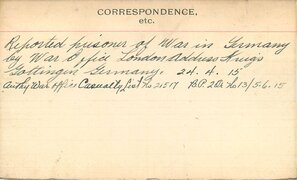 CORRESPONDENCE,
etc.
Reported prisoner of War in Germany
by War Office London Address Kriegs
Gottingen Germany. 24. 4. 15
Authy War Office Casualty List No 21517 B.P. 2 Or. No 13/5.6.15